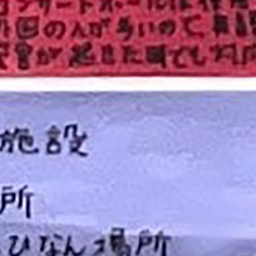 コンサートホールは
外国の人が多いので
災害が起きた時でも
施設
所
ひなん場所